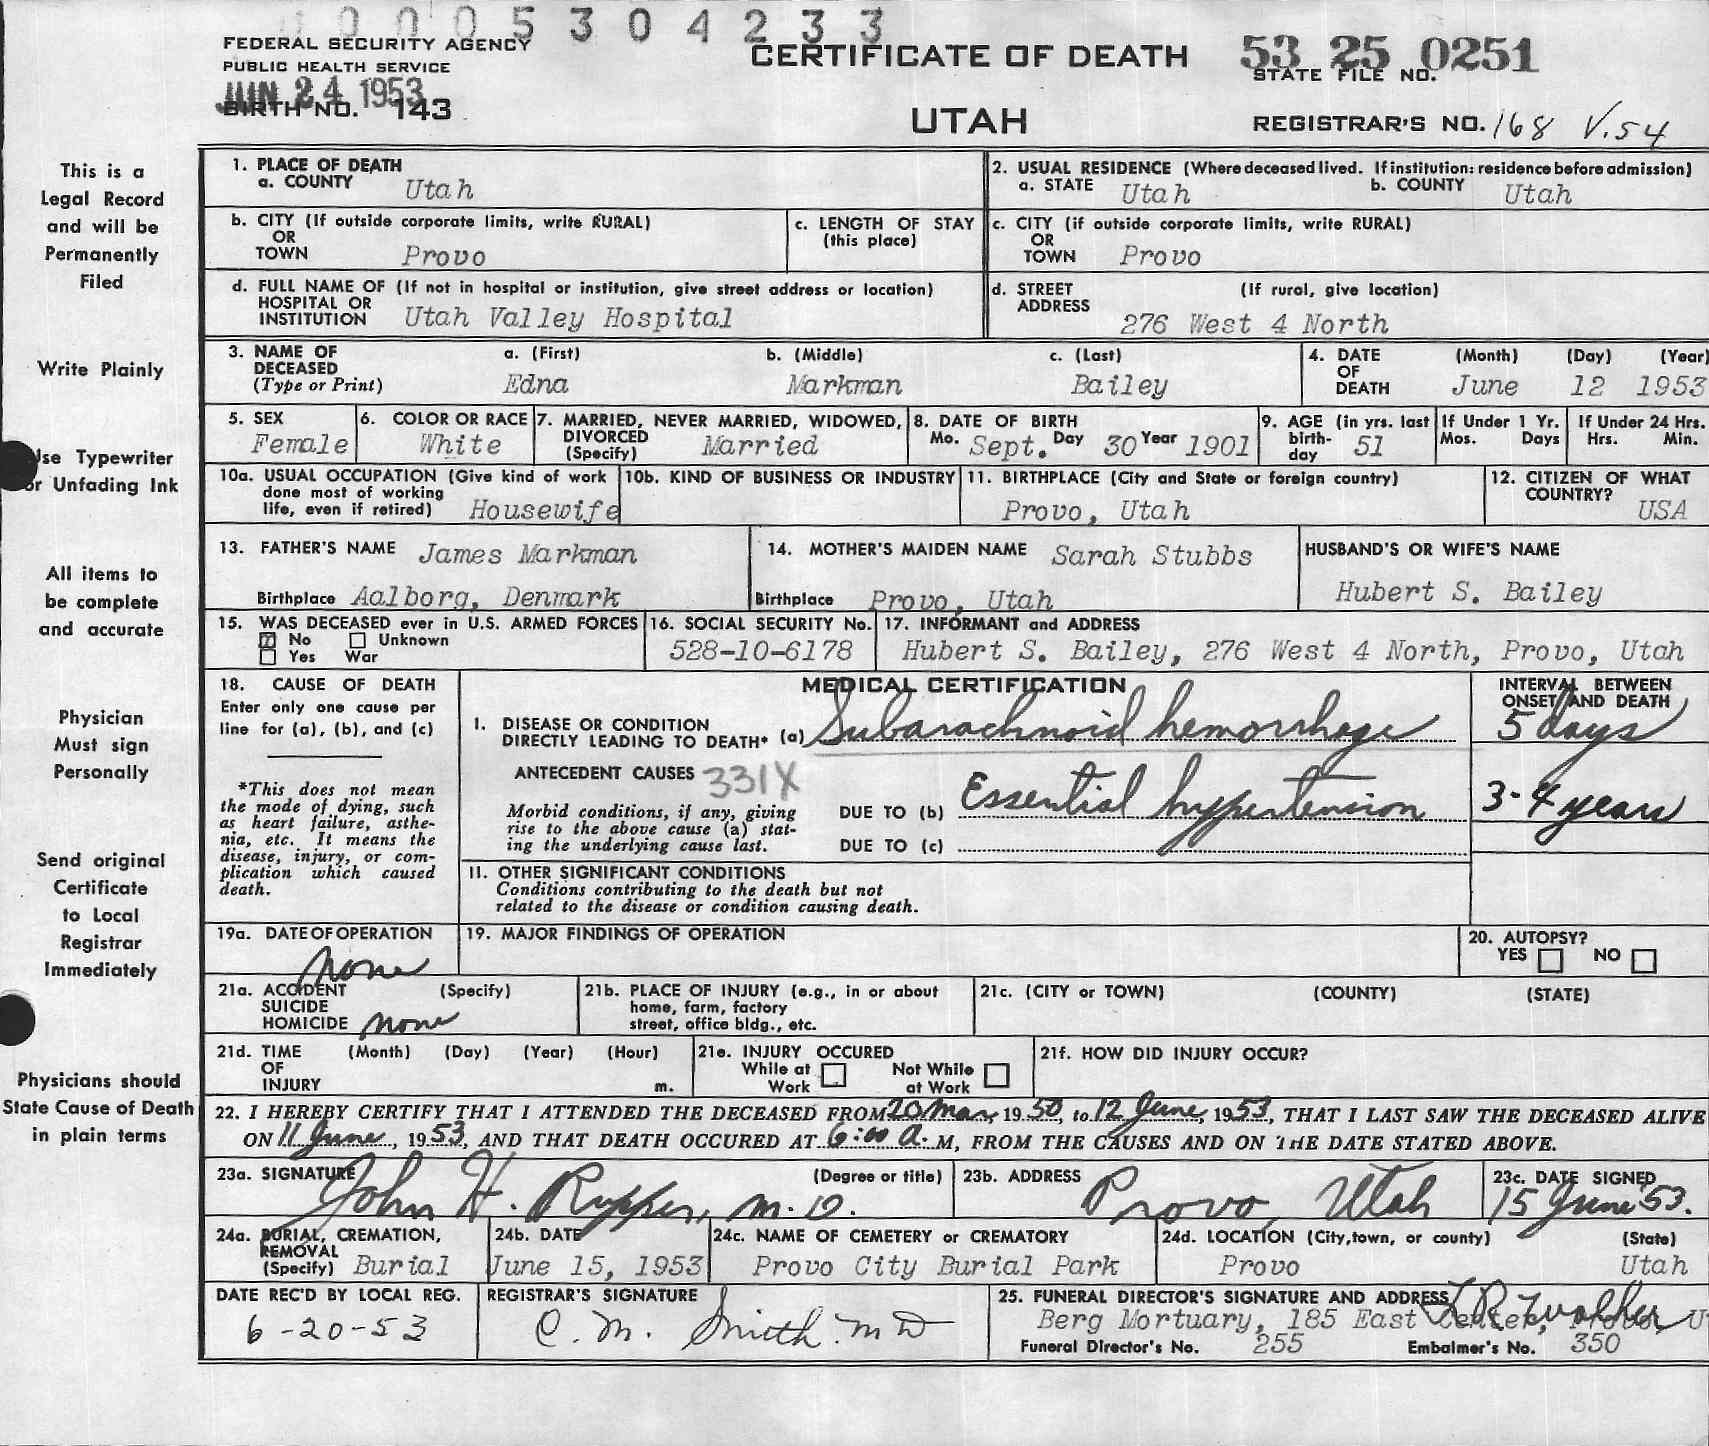 0005304233
FEDERAL SECURITY AGENCY
PUBLIC HEALTH SERVICE
JUN 24 1953
BIRTH NO. 143
CERTIFICATE OF DEATH
UTAH
53 25 0251
STATE FILE NO.
REGISTRAR'S NO. 168 V.54
This is a
Legal Record
and will be
Permanently
Filed
Write Plainly
Use Typewriter
or Unfading Ink
All items to
be complete
and accurate
Physician
Must sign
Personally
Send original
Certificate
to Local
Registrar
Immediately
Physicians should
State Cause of Death
in plain terms
1. PLACE OF DEATH
a. COUNTY Utah
2. USUAL RESIDENCE (Where deceased lived. If institution: residence before admission)
a. STATE Utah b. COUNTY Utah
b. CITY (If outside corporate limits, write RURAL)
OR
TOWN Provo
c. LENGTH OF STAY
(this place)
c. CITY (if outside corporate limits, write RURAL)
OR
TOWN Provo
d. FULL NAME OF (If not in hospital or institution, give street address or location)
HOSPITAL OR
INSTITUTION Utah Valley Hospital
d. STREET (If rural, give location)
ADDRESS
276 West 4 North
3. NAME OF a. (First) b. (Middle) c. (Last)
DECEASED
(Type or Print) Edna Markman Bailey
4. DATE (Month) (Day) (Year)
OF
DEATH June 12 1953
5. SEX
Female
6. COLOR OR RACE
White
7. MARRIED, NEVER MARRIED, WIDOWED,
DIVORCED
(Specify) Married
8. DATE OF BIRTH
Mo. Sept. Day 30 Year 1901
9. AGE (in yrs. last
birth-
day 51
If Under 1 Yr.
Mos. Days
If Under 24 Hrs.
Hrs. Min.
10a. USUAL OCCUPATION (Give kind of work
done most of working
life, even if retired) Housewife
10b. KIND OF BUSINESS OR INDUSTRY
11. BIRTHPLACE (City and State or foreign country)
Provo, Utah
12. CITIZEN OF WHAT
COUNTRY?
USA
13. FATHER'S NAME James Markman
Birthplace Aalborg, Denmark
14. MOTHER'S MAIDEN NAME Sarah Stubbs
Birthplace Provo, Utah
HUSBAND'S OR WIFE'S NAME
Hubert S. Bailey
15. WAS DECEASED ever in U.S. ARMED FORCES
No Unknown
Yes War
16. SOCIAL SECURITY No.
528-10-6178
17. INFORMANT and ADDRESS
Hubert S. Bailey, 276 West 4 North, Provo, Utah
18. CAUSE OF DEATH
Enter only one cause per
line for (a), (b), and (c)
*This does not mean
the mode of dying, such
as heart failure, asthe-
nia, etc. It means the
disease, injury, or com-
plication which caused
death.
MEDICAL CERTIFICATION
INTERVAL BETWEEN
ONSET AND DEATH
I. DISEASE OR CONDITION
DIRECTLY LEADING TO DEATH* (a) Subarachnoid hemorrhage 5 days
ANTECEDENT CAUSES 331X
Morbid conditions, if any, giving
rise to the above cause (a) stat-
ing the underlying cause last.
DUE TO (b) Essential hypertension 3-4 years
DUE TO (c)
11. OTHER SIGNIFICANT CONDITIONS
Conditions contributing to the death but not
related to the disease or condition causing death.
19a. DATE OF OPERATION
none
19. MAJOR FINDINGS OF OPERATION
20. AUTOPSY?
YES NO
21a. ACCIDENT (Specify)
SUICIDE
HOMICIDE none
21b. PLACE OF INJURY (e.g., in or about
home, farm, factory
street, office bldg., etc.
21c. (CITY or TOWN) (COUNTY) (STATE)
21d. TIME (Month) (Day) (Year) (Hour)
OF
INJURY m.
21e. INJURY OCCURED
While at Not While
Work at Work
21f. HOW DID INJURY OCCUR?
22. I HEREBY CERTIFY THAT I ATTENDED THE DECEASED FROM 20 Mar, 1950, to 12 June, 1953, THAT I LAST SAW THE DECEASED ALIVE
ON 11 June, 1953, AND THAT DEATH OCCURED AT 6:00 A. M, FROM THE CAUSES AND ON THE DATE STATED ABOVE.
23a. SIGNATURE (Degree or title)
John H. Rupper, M.D.
23b. ADDRESS
Provo, Utah
23c. DATE SIGNED
15 June '53.
24a. BURIAL, CREMATION,
REMOVAL
(Specify) Burial
24b. DATE
June 15, 1953
24c. NAME OF CEMETERY or CREMATORY
Provo City Burial Park
24d. LOCATION (City, town, or county) (State)
Provo Utah
DATE REC'D BY LOCAL REG.
6-20-53
REGISTRAR'S SIGNATURE
C. M. Smith MD
25. FUNERAL DIRECTOR'S SIGNATURE AND ADDRESS
Berg Mortuary, 185 East Center, Provo, U
Funeral Director's No. 255 Embalmer's No. 350